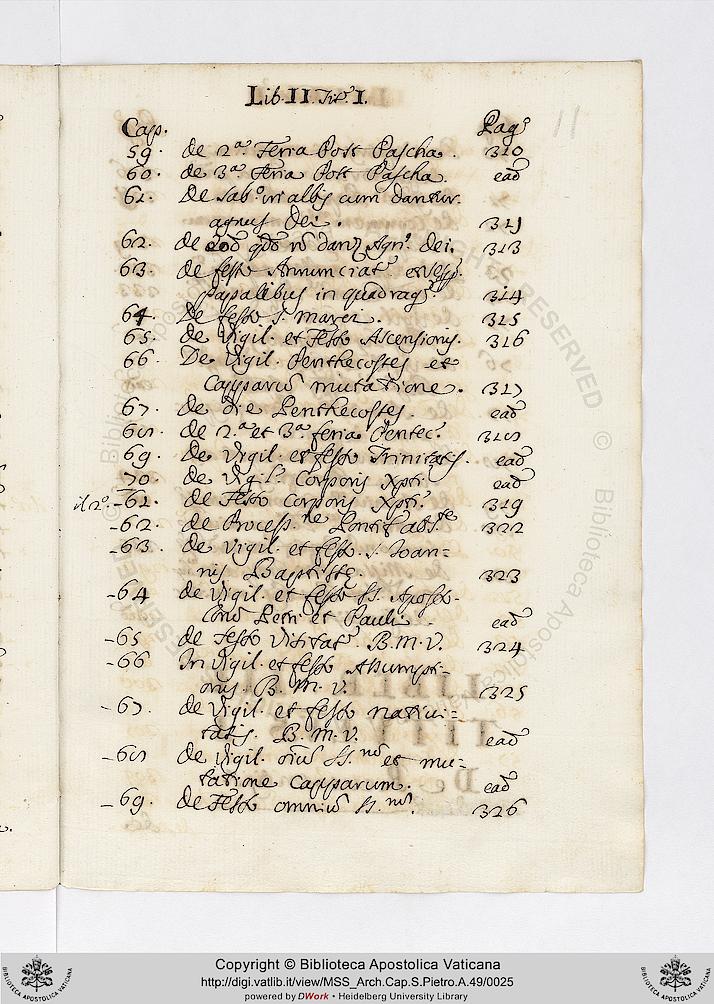 Lib. II. Tit.º I.
11
Cap. Pag.ª
59. de 2.ª Feria Post Pascha. 310
60. de 3.ª Feria Post Pascha. ead
61. De Sab.º in albis cum dantur
agnus Dei. 311
62. de eod. qdo nō danz Agn.º Dei. 313
63. de festo Annunciat.
papalibus in quadrag.ª 314
64. De festo S. Marci. 315
65. de Vigil. et Festo Ascensionis. 316
66. De Vigil. Penthecostes et
Capparū mutatione. 317
67. de die Penthecostes. ead
68. de 2.ª et 3.ª feria Pentec. 318
69. de Vigil. et festo Trinitatis. ead
70. de Vigil. Corporis Xpti. ead
il 2.º -61. de Festo Corporis Xpti. 319
-62. de Process.ne Pontif. abs.te 322
-63. de Vigil. et festo S. Joan=
nis Baptistę. 323
-64 de Vigil. et festo SS. Aposto-
lorū Petri et Pauli. ead
-65 de Festo Visitat. B. M. V. 324
-66 In Vigil. et festo Assumpt-
onis B. M. V. 325
-67. de Vigil. et festo nativi=
tatis. B. M. V. ead
-68 de Vigil. oiū SS.norū et mu=
tatione Capparum. ead
-69. de Festo omniū SS.norū 326
BIBLIOTECA APOSTOLICA VATICANA
Copyright © Biblioteca Apostolica Vaticana
http://digi.vatlib.it/view/MSS_Arch.Cap.S.Pietro.A.49/0025
powered by DWork • Heidelberg University Library
BIBLIOTECA APOSTOLICA VATICANA